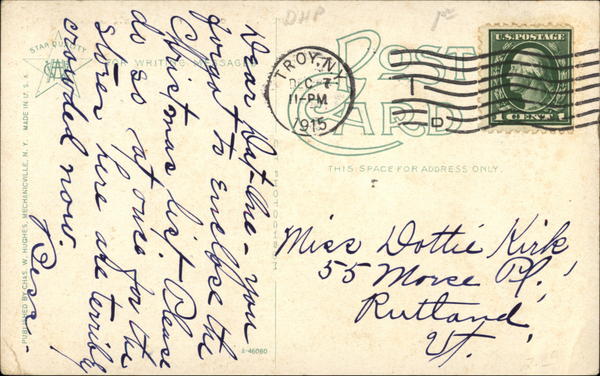 DHP
STAR QUALITY
MADE IN U.S.A.
PUBLISHED BY CHAS. W. HUGHES, MECHANICVILLE, N.Y.
FOR WRITING MESSAGES
Dear Dot-One - you
forgot to enclose the
Christmas list. Please
do so at once for the
stores here are terribly
crowded now.
Bess -
A-46080
POST
CARD
TROY, N.Y.
DEC 7
11-PM
1915
D
U.S. POSTAGE
1 CENT 1
THIS SPACE FOR ADDRESS ONLY.
Miss Dottie Kirk
55 Morse Pl.,
Rutland,
Vt.